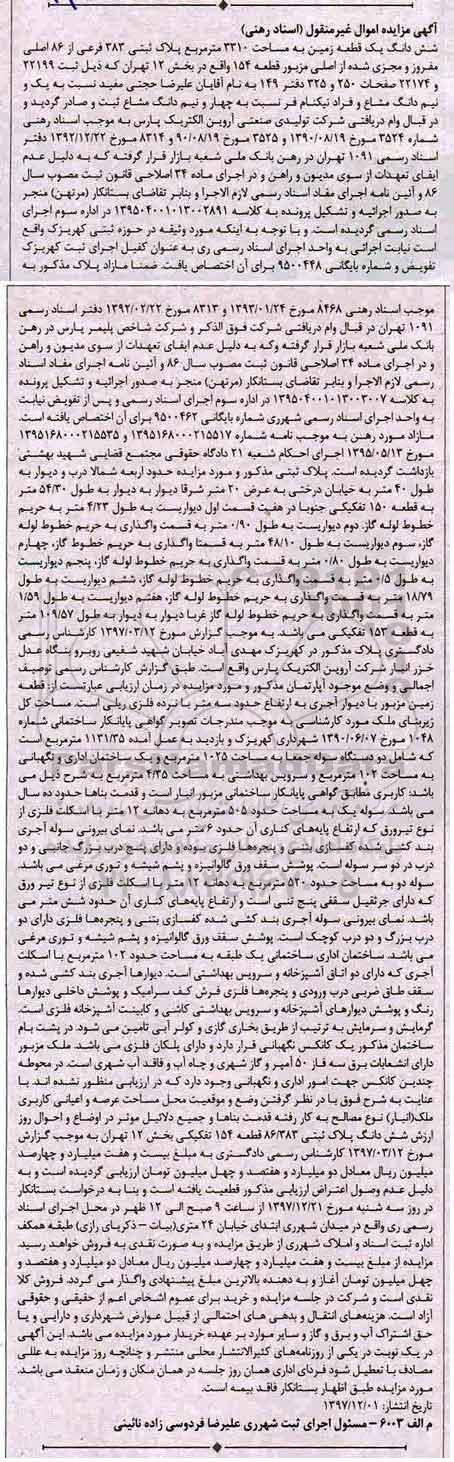 آگهی مزایده اموال غیرمنقول (اسناد رهنی)
شش دانگ یک قطعه زمین به مساحت ۳۳۱۰ مترمربع پلاک ثبتی ۳۸۳ فرعی از ۸۶ اصلی
مفروز و مجزی شده از اصلی مزبور قطعه ۱۵۴ واقع در بخش ۱۲ تهران که ذیل ثبت ۲۲۱۹۹
و ۲۲۱۷۴ صفحات ۲۵۰ و ۳۲۵ دفتر ۱۴۹ به نام آقایان علیرضا حجتی مفید نسبت به یک و
نیم دانگ مشاع و فراد نیکنام فر نسبت به چهار و نیم دانگ مشاع ثبت و صادر گردید و
در قبال وام دریافتی شرکت تولیدی صنعتی آروین الکتریک پارس به موجب اسناد رهنی
شماره ۳۵۲۴ مورخ ۱۳۹۰/۰۸/۱۹ و ۳۵۲۵ مورخ ۹۰/۰۸/۱۹ و ۸۳۱۴ مورخ ۱۳۹۲/۱۲/۲۲ دفتر
اسناد رسمی ۱۰۹۱ تهران در رهن بانک ملی شعبه بازار قرار گرفته که به دلیل عدم
ایفای تعهدات از سوی مدیون و راهن و در اجرای ماده ۳۴ اصلاحی قانون ثبت مصوب سال
۸۶ و آئین نامه اجرای مفاد اسناد رسمی لازم الاجرا و بنابر تقاضای بستانکار (مرتهن) منجر
به صدور اجرائیه و تشکیل پرونده به کلاسه ۱۳۹۵۰۴۰۰۱۰۱۳۰۰۲۸۹۱ در اداره سوم اجرای
اسناد رسمی گردیده است. و با توجه به اینکه مورد وثیقه در حوزه ثبتی کهریزک واقع
است نیابت اجرائی به واحد اجرای اسناد رسمی ری به عنوان کفیل اجرای ثبت کهریزک
تفویض و شماره بایگانی ۹۵۰۰۴۴۸ برای آن اختصاص یافت. ضمنا مازاد پلاک مذکور به
موجب اسناد رهنی ۸۴۶۸ مورخ ۱۳۹۳/۰۱/۲۴ و ۸۳۱۳ مورخ ۱۳۹۲/۰۲/۲۲ دفتر اسناد رسمی
۱۰۹۱ تهران در قبال وام دریافتی شرکت فوق الذکر و شرکت شاخص پلیمر پارس در رهن
بانک ملی شعبه بازار قرار گرفته وکه به دلیل عدم ایفای تعهدات از سوی مدیون و راهن
و در اجرای ماده ۳۴ اصلاحی قانون ثبت مصوب سال ۸۶ و آئین نامه اجرای مفاد اسناد
رسمی لازم الاجرا و بنابر تقاضای بستانکار (مرتهن) منجر به صدور اجرائیه و تشکیل پرونده
به کلاسه ۱۳۹۵۰۴۰۰۱۰۱۳۰۰۳۰۰۷ در اداره سوم اجرای اسناد رسمی و پس از تفویض نیابت
به واحد اجرای اسناد رسمی شهرری شماره بایگانی ۹۵۰۰۴۶۲ برای آن اختصاص یافته است.
مازاد مورد رهن به موجب نامه شماره ۱۳۹۵۱۶۸۰۰۰۲۱۵۵۱۷ و ۱۳۹۵۱۶۸۰۰۰۲۱۵۵۳۵
مورخ ۱۳۹۵/۰۵/۱۳ اجرای احکام شعبه ۲۱ دادگاه حقوقی مجتمع قضایی شهید بهشتی
بازداشت گردیده است. پلاک ثبتی مذکور و مورد مزایده حدود اربعه شمالا درب و دیوار به
طول ۴۰ متر به خیابان درختی به عرض ۲۰ متر شرقا دیوار به دیوار به طول ۵۴/۳۰ متر
به قطعه ۱۵۰ تفکیکی جنوبا در هفت قسمت اول دیواریست به طول ۴/۲۳ متر به حریم
خطوط لوله گاز، دوم دیواریست به طول ۰/۹۰ متر به قسمت واگذاری به حریم خطوط لوله
گاز، سوم دیواریست به طول ۴۸/۱۰ متر به قسمتا واگذاری به حریم خطوط گاز، چهارم
دیواریست به طول ۰/۸۰ متر به قسمت واگذاری به حریم خطوط لوله گاز، پنجم دیواریست
به طول ۰/۵ متر به قسمت واگذاری به حریم خطوط لوله گاز، ششم دیواریست به طول
۱۸/۷۹ متر به قسمت واگذاری به حریم خطوط لوله گاز، هفتم دیواریست به طول ۱/۵۹
متر به قسمت واگذاری به حریم خطوط لوله گاز غربا دیوار به دیوار به طول ۱۰۹/۵۷ متر
به قطعه ۱۵۳ تفکیکی می باشد. به موجب گزارش مورخ ۱۳۹۷/۰۳/۱۲ کارشناس رسمی
دادگستری پلاک مذکور در کهریزک مهدی آباد خیابان شهید شفیعی روبرو بنگاه عدل
خزر انبار شرکت آروین الکتریک پارس واقع است. طبق گزارش کارشناس رسمی توصیف
اجمالی و وضع موجود آپارتمان مذکور و مورد مزایده در زمان ارزیابی عبارتست از: قطعه
زمین مزبور با دیوار آجری به ارتفاع حدود سه متر با نرده فلزی ریلی است. مساحت کل
زیربنای ملک مورد کارشناسی به موجب مندرجات تصویر گواهی پایانکار ساختمانی شماره
۱۰۴۸ مورخ ۱۳۹۰/۰۶/۰۷ شهرداری کهریزک و بازدید به عمل آمده ۱۱۳۱/۳۵ مترمربع است
که شامل دو دستگاه سوله جمعا به مساحت ۱۰۲۵ مترمربع و یک ساختمان اداری و نگهبانی
به مساحت ۱۰۲ مترمربع و سرویس بهداشتی به مساحت ۴/۳۵ مترمربع به شرح ذیل می
باشد: کاربری مطابق گواهی پایانکار ساختمانی مزبور انبار است و قدمت بناها حدود ده سال
می باشد. سوله یک به مساحت حدود ۵۰۵ مترمربع به دهانه ۱۲ متر با اسکلت فلزی از
نوع تیرورق که ارتفاع پایه‌های کناری آن حدود ۶ متر می باشد. نمای بیرونی سوله آجری
بند کشی شده کفسازی بتنی و پنجره‌ها فلزی بوده و دارای پنج درب بزرگ جانبی و دو
درب در دو سر سوله است. پوشش سقف ورق گالوانیزه و پشم شیشه و توری مرغی می باشد.
سوله دو به مساحت حدود ۵۲۰ مترمربع به دهانه ۱۲ متر با اسکلت فلزی از نوع تیر ورق
که دارای جرثقیل سقفی پنج تنی است و ارتفاع پایه‌های کناری آن حدود شش متر می
باشد. نمای بیرونی سوله آجری بند کشی شده کفسازی بتنی و پنجره‌ها فلزی دارای دو
درب بزرگ و دو درب کوچک است. پوشش سقف ورق گالوانیزه و پشم شیشه و توری مرغی
می باشد. ساختمان اداری ساختمانی یک طبقه به مساحت حدود ۱۰۲ مترمربع با اسکلت
آجری که دارای دو اتاق آشپزخانه و سرویس بهداشتی است. دیوارها آجری بند کشی شده و
سقف طاق ضربی درب ورودی و پنجره‌ها فلزی فرش کف سرامیک و پوشش داخلی دیوارها
رنگ و پوشش دیوارهای آشپزخانه و سرویس بهداشتی کاشی و کابینت آشپزخانه فلزی است.
گرمایش و سرمایش به ترتیب از طریق بخاری گازی و کولر آبی تامین می شود. در پشت بام
ساختمان مذکور یک کانکس نگهبانی قرار دارد و دارای پلکان فلزی می باشد. ملک مزبور
دارای انشعابات برق سه فاز ۵۰ آمپر و گاز شهری و چاه آب و فاقد آب شهری است. در محوطه
چندین کانکس جهت امور اداری و نگهبانی وجود دارد که در ارزیابی منظور نشده اند. با
عنایت به شرح فوق با در نظر گرفتن وضع و موقعیت محل مساحت عرصه و اعیانی کاربری
ملک(انبار) نوع مصالح به کار رفته قدمت بناها و جمیع دلائیل موثر در اوضاع و احوال روز
ارزش شش دانگ پلاک ثبتی ۸۶/۳۸۳ قطعه ۱۵۴ تفکیکی بخش ۱۲ تهران به موجب گزارش
مورخ ۱۳۹۷/۰۳/۱۲ کارشناس رسمی دادگستری به مبلغ بیست و هفت میلیارد و چهارصد
میلیون ریال معادل دو میلیارد و هفتصد و چهل میلیون تومان ارزیابی گردیده است و به
دلیل عدم وصول اعتراض ارزیابی مذکور قطعیت یافته است و بنا به درخواست بستانکار
در روز سه شنبه مورخ ۱۳۹۷/۱۲/۲۱ از ساعت ۹ صبح الی ۱۲ ظهر در محل اجرای اسناد
رسمی ری واقع در میدان شهرری ابتدای خیابان ۲۴ متری(بیات - ذکریای رازی) طبقه همکف
اداره ثبت اسناد و املاک شهرری از طریق مزایده و به صورت نقدی به فروش خواهد رسید.
مزایده از مبلغ بیست و هفت میلیارد و چهارصد میلیون ریال معادل دو میلیارد و هفتصد و
چهل میلیون تومان آغاز و به دهنده بالاترین مبلغ پیشنهادی واگذار می گردد. فروش کلا
نقدی است و شرکت در جلسه مزایده و خرید برای عموم اشخاص اعم از حقیقی و حقوقی
آزاد است. هزینه‌های انتقال و بدهی های احتمالی از قبیل عوارض شهرداری و دارایی و یا
حق اشتراک آب و برق و گاز و سایر موارد بر عهده خریدار مورد مزایده می باشد. این آگهی
در یک نوبت در یکی از روزنامه‌های کثیرالانتشار محلی منتشر و چنانچه روز مزایده به عللی
مصادف با تعطیل شود فردای اداری همان روز جلسه در همان مکان و زمان منعقد می باشد.
مورد مزایده طبق اظهار بستانکار فاقد بیمه است.
تاریخ انتشار: ۱۳۹۷/۱۲/۰۱
م الف ۶۰۰۳ - مسئول اجرای ثبت شهرری علیرضا فردوسی زاده نائینی